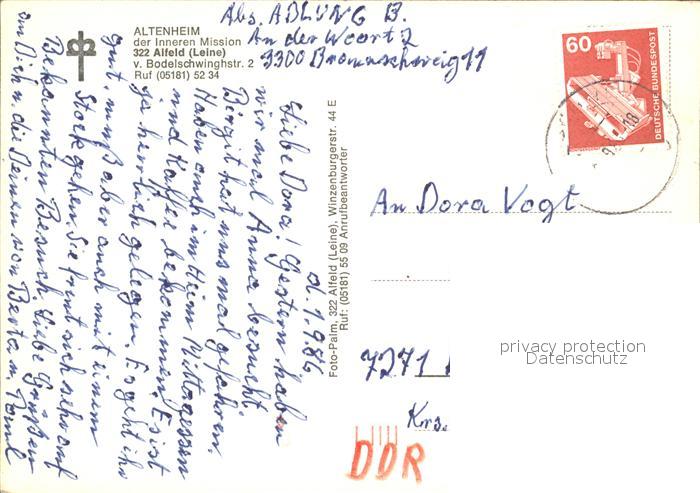 ALTENHEIM
der Inneren Mission
322 Alfeld (Leine)
v. Bodelschwinghstr. 2
Ruf (05181) 52 34
Abs. ADLUNG B.
An der Woort 2
3300 Braunschweig 11
60
DEUTSCHE BUNDESPOST
d. 1.9.86
Liebe Dora! Gestern haben
wir mal Anna besucht.
Birgit hat uns mal gefahren.
Haben auch im Heim Mittagessen
und Kaffee bekommen. Es ist
ja herrlich gelegen. Es geht ihr
gut, muß aber auch mit einem
Stock gehen. Sie freut sich sehr auf
Bekannten Besuch. Liebe Grüße
an Dich u. die Deinen von Berta u.
Foto-Palm, 322 Alfeld (Leine), Winzenburgerstr. 44 E
Ruf: (05181) 55 09 Anrufbeantworter
An Dora Vogt
7271
Krs.
DDR
privacy protection
Datenschutz